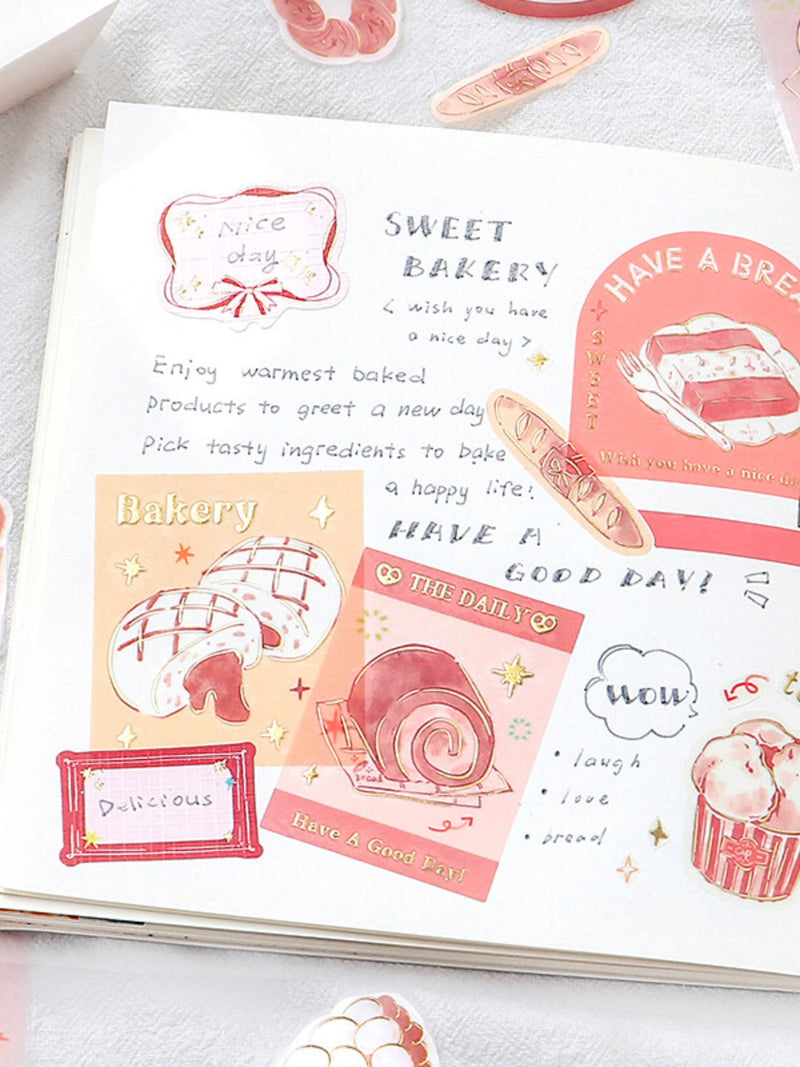 Nice
day
SWEET
BAKERY
< wish you have
a nice day >
HAVE A BREA
SWEET
Wish you have a nice da
Enjoy warmest baked
products to greet a new day
Pick tasty ingredients to bake
a happy life!
HAVE A
GOOD DAY!
Bakery
THE DAILY
bread
Have A Good Day!
Delicious
WOW
• laugh
• love
• bread
cup